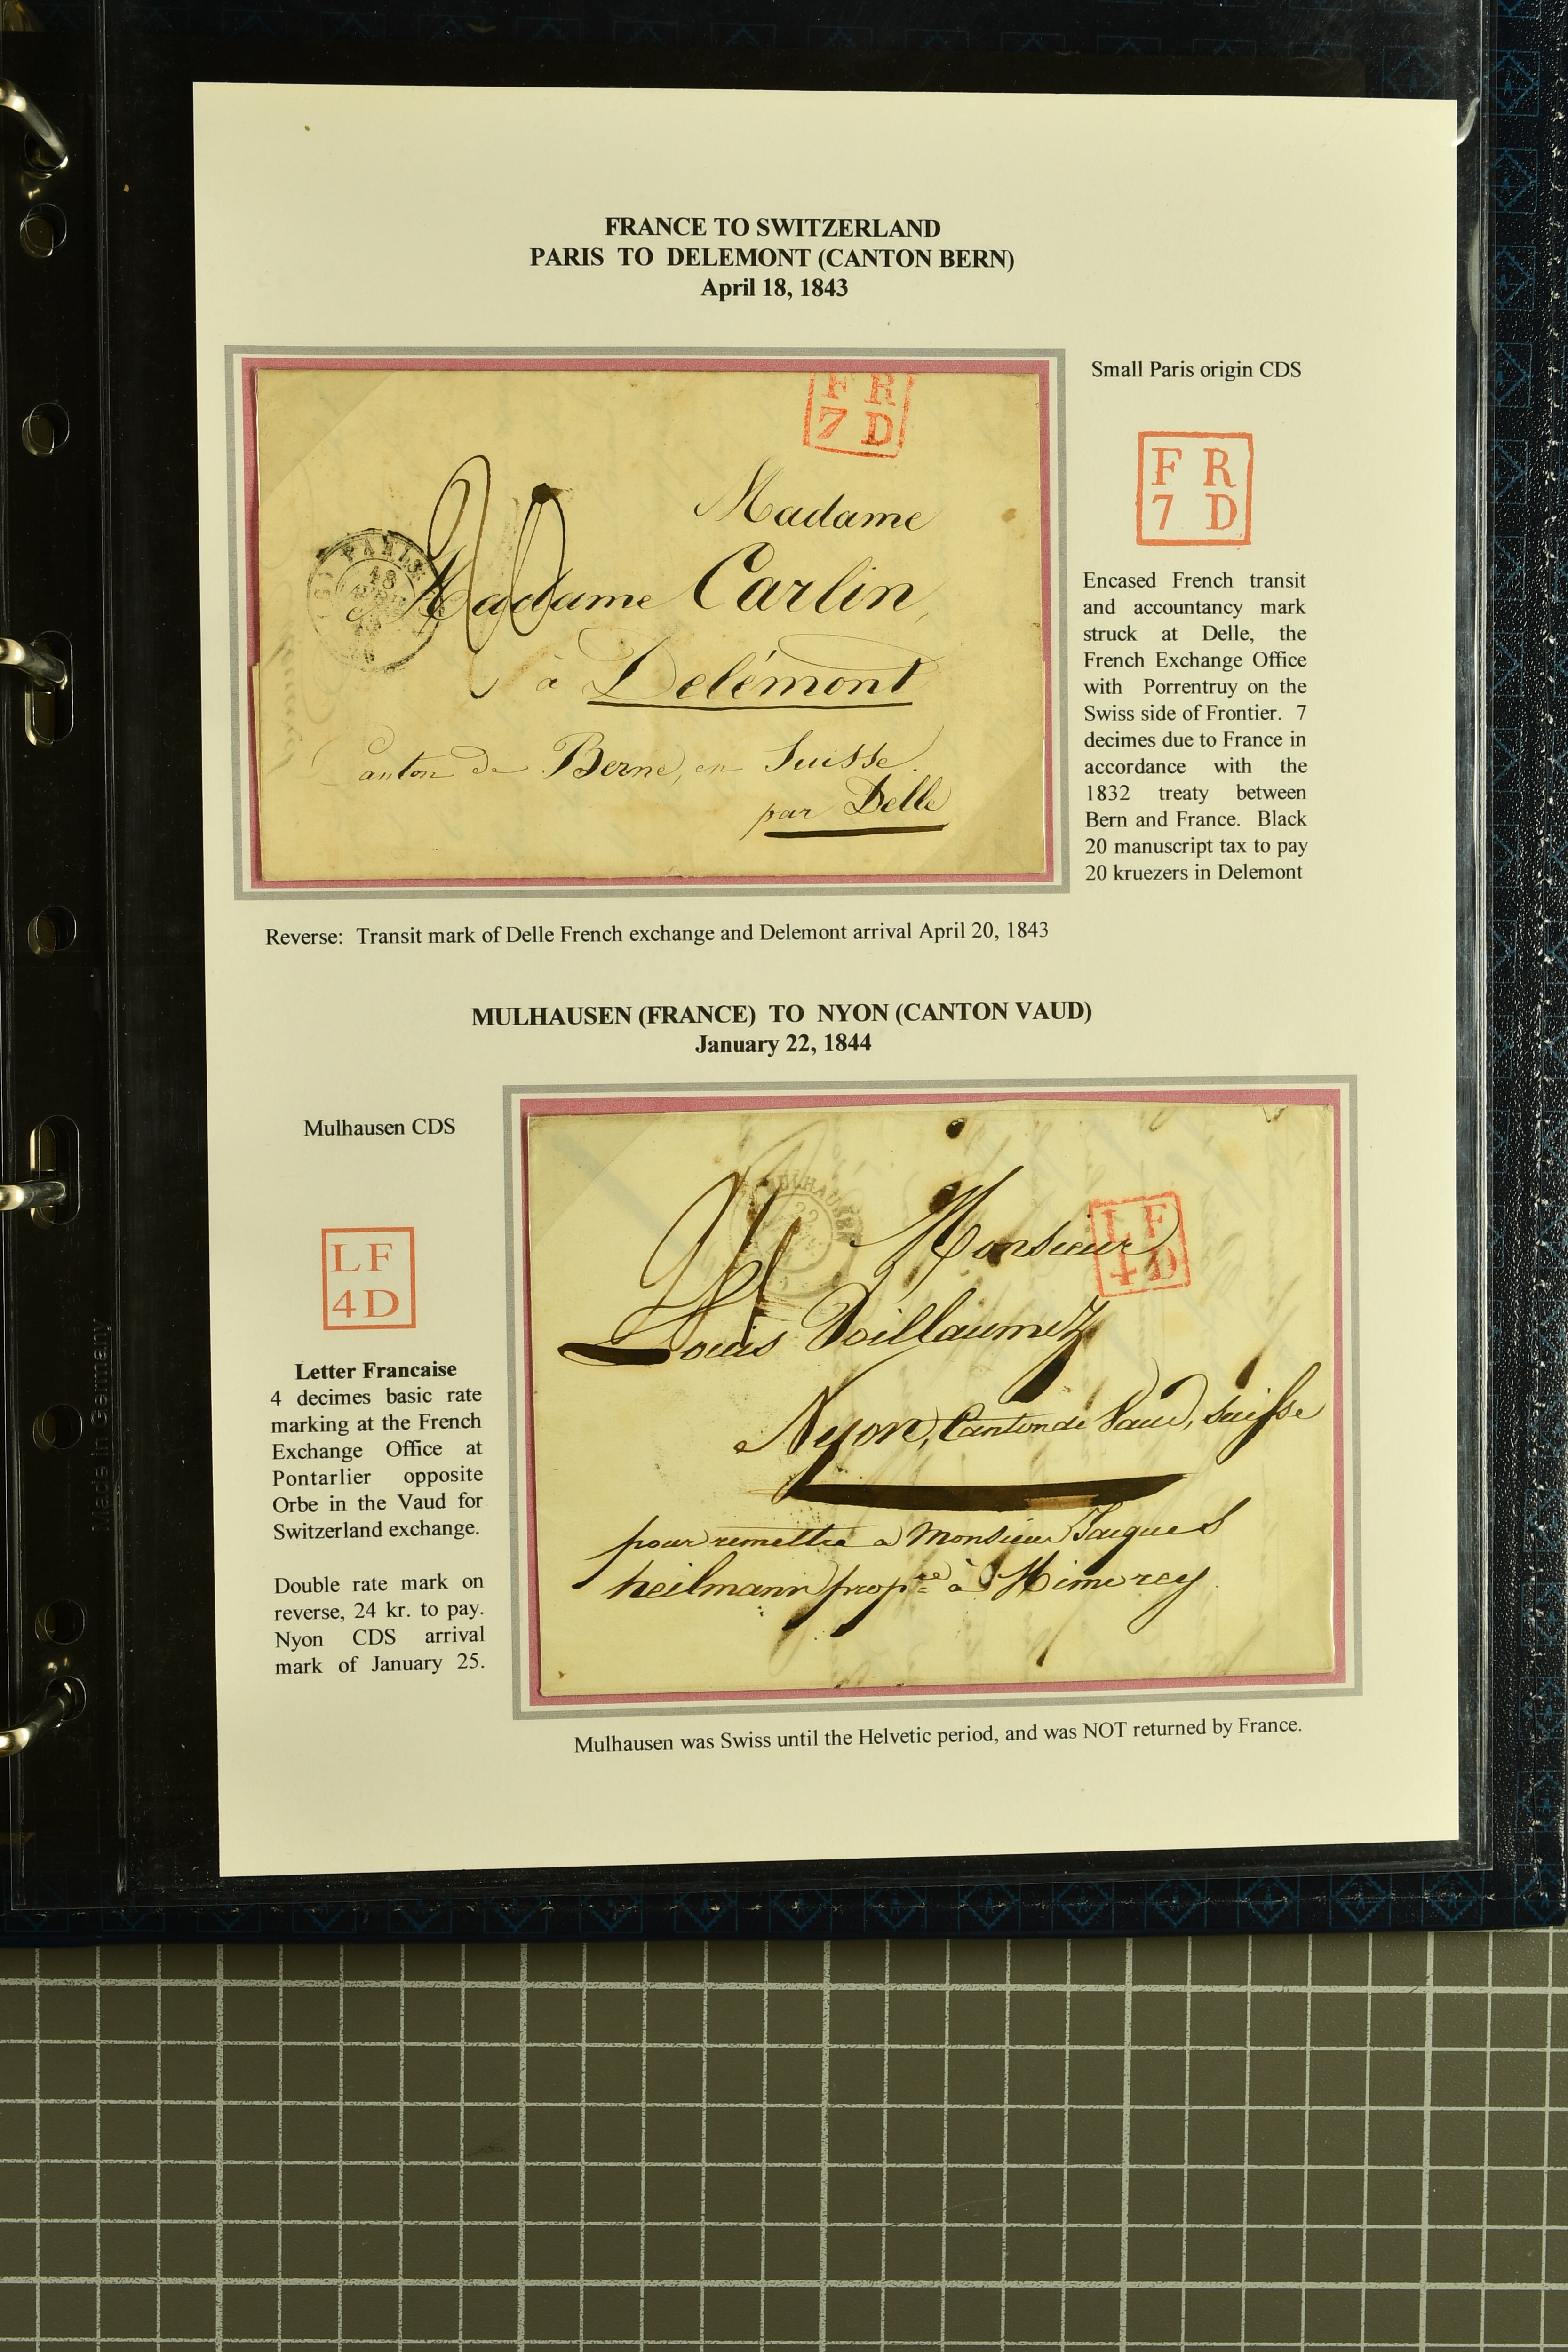 FRANCE TO SWITZERLAND
PARIS TO DELEMONT (CANTON BERN)
April 18, 1843
Small Paris origin CDS
F R
7 D
F R
7 D
Encased French transit
and accountancy mark
struck at Delle, the
French Exchange Office
with Porrentruy on the
Swiss side of Frontier. 7
decimes due to France in
accordance with the
1832 treaty between
Bern and France. Black
20 manuscript tax to pay
20 kruezers in Delemont
20
PARIS
18
Madame
Madame Carlin,
à Delémont
Canton de Berne, en Suisse.
par Delle
Reverse: Transit mark of Delle French exchange and Delemont arrival April 20, 1843
MULHAUSEN (FRANCE) TO NYON (CANTON VAUD)
January 22, 1844
Mulhausen CDS
LF
4D
Letter Francaise
4 decimes basic rate
marking at the French
Exchange Office at
Pontarlier opposite
Orbe in the Vaud for
Switzerland exchange.
Double rate mark on
reverse, 24 kr. to pay.
Nyon CDS arrival
mark of January 25.
MULHAUSEN
22
24
LF
4D
Monsieur
Louis
Nyon, Canton de Vaud, Suisse
pour remettre a Monsieur Jacques
heilmann prop.re à
Mulhausen was Swiss until the Helvetic period, and was NOT returned by France.
Made in Germany